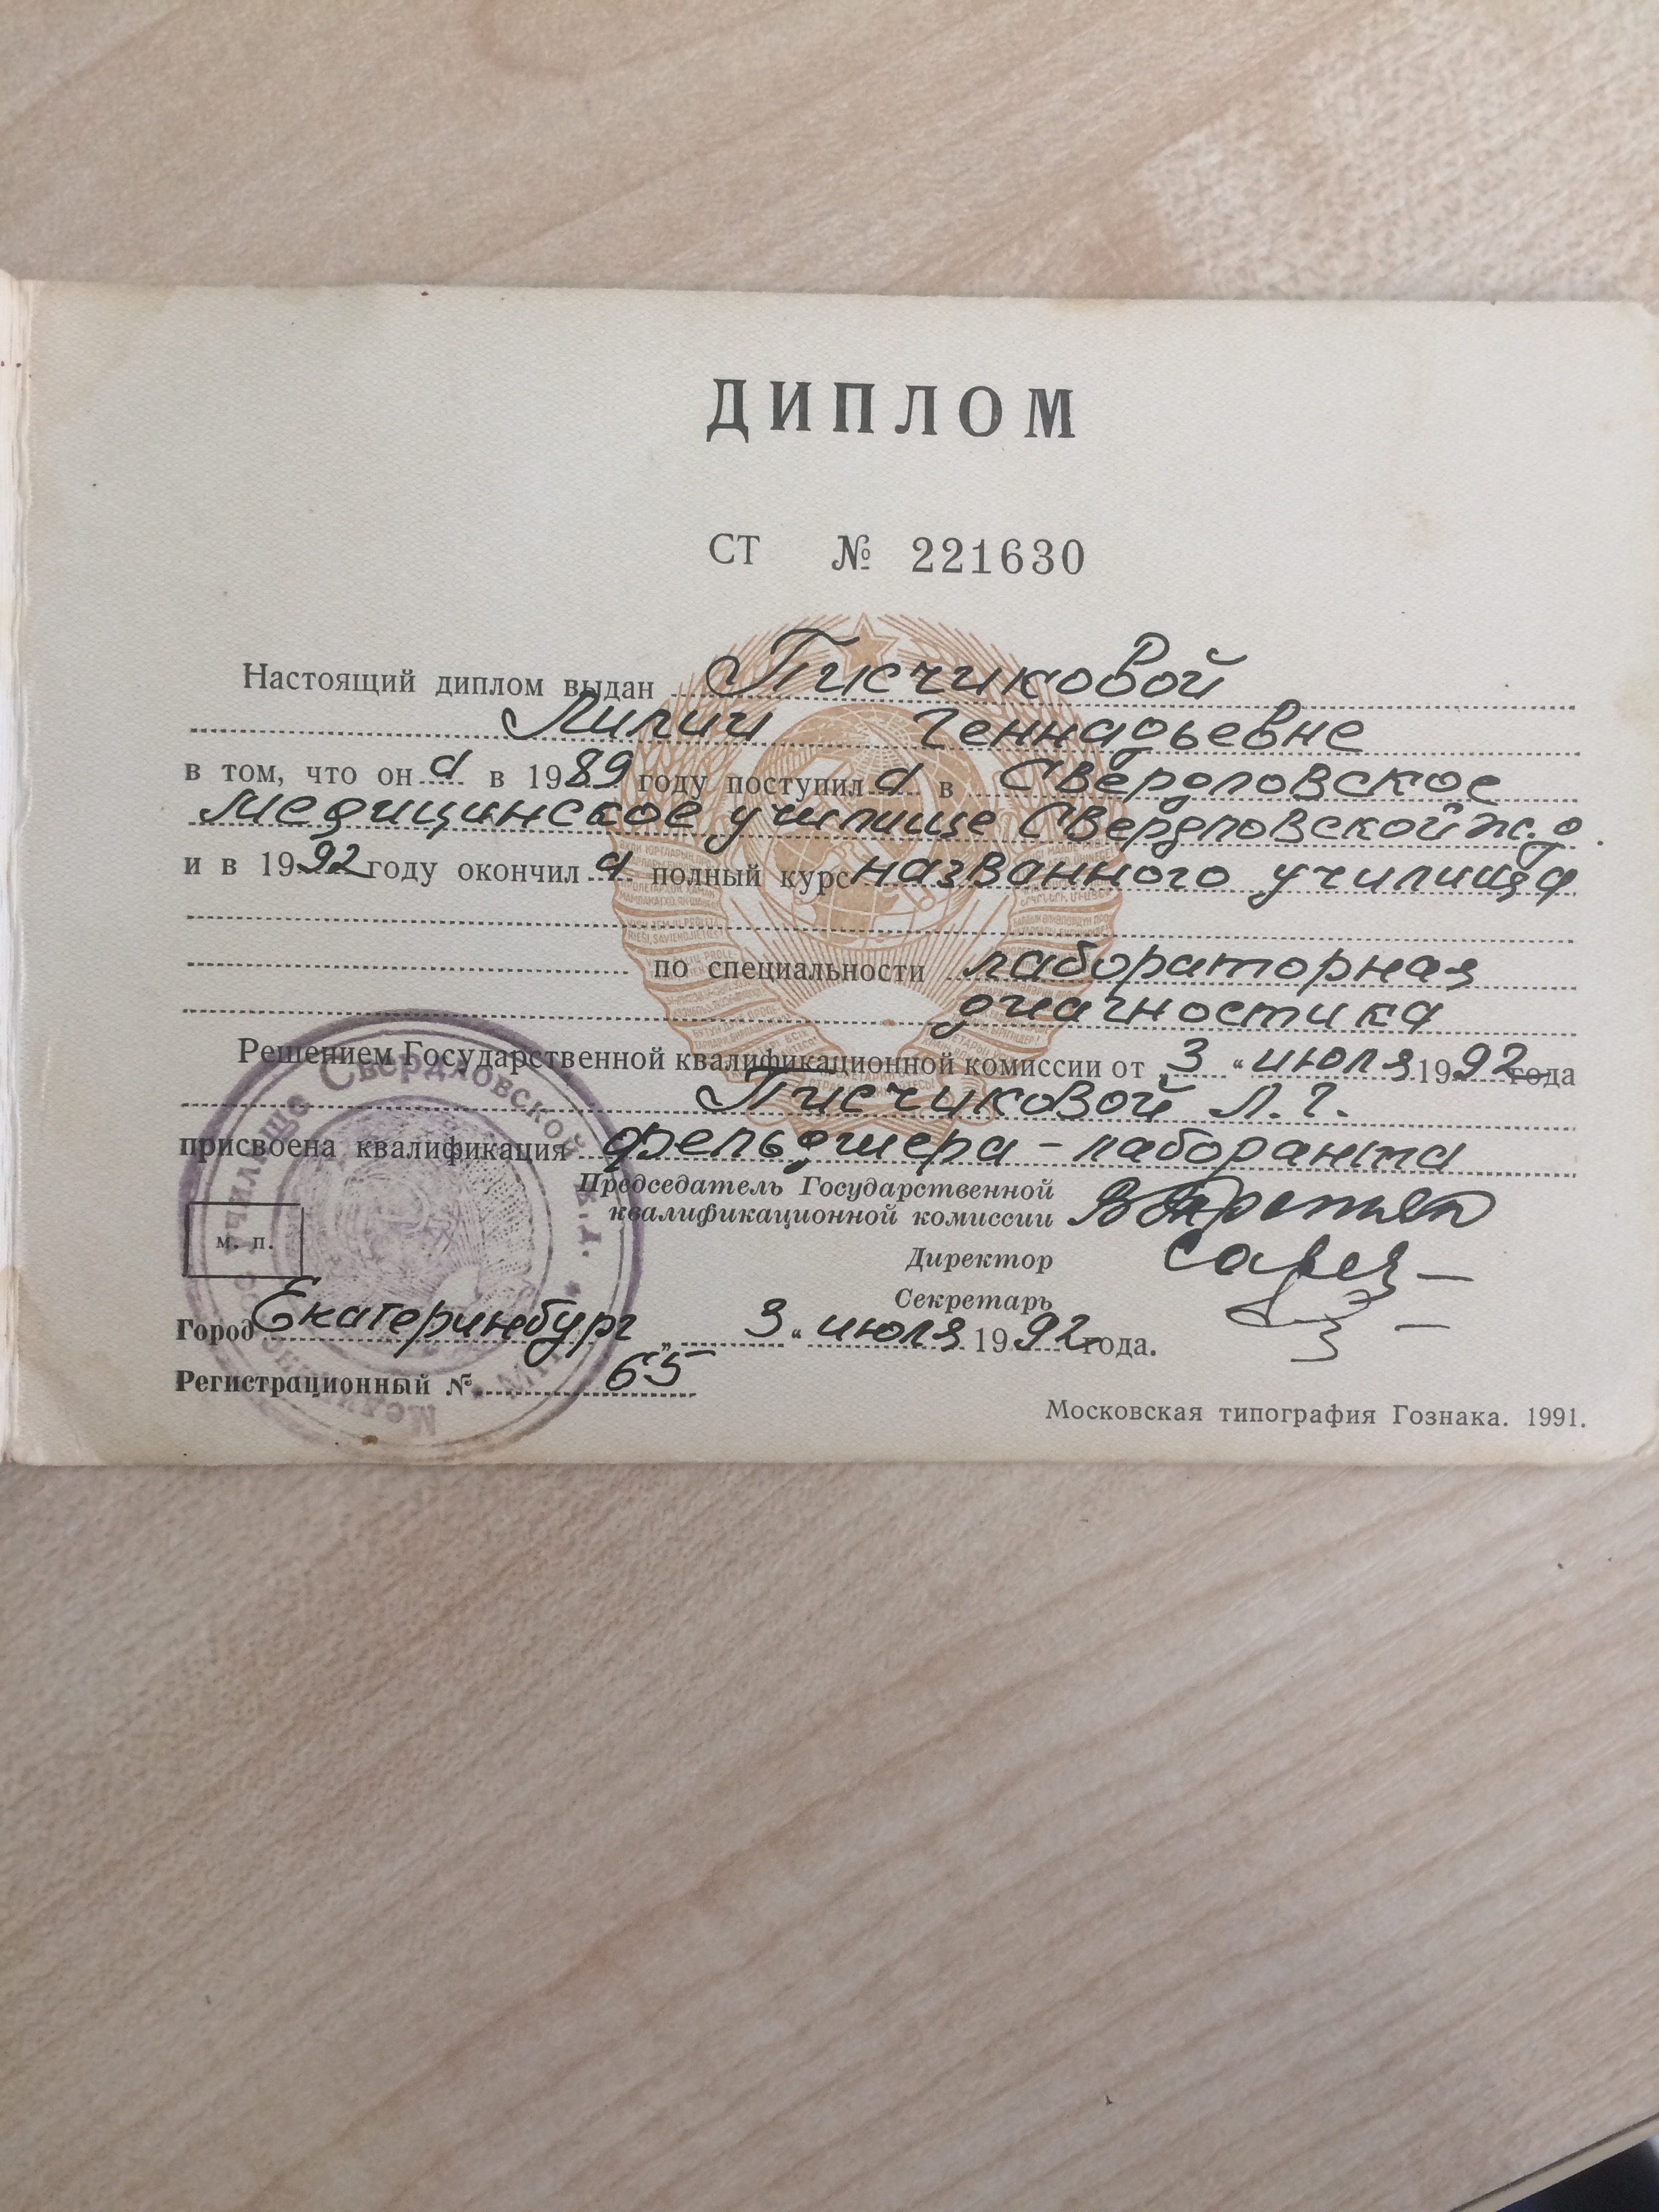 ДИПЛОМ
СТ № 221630
Настоящий диплом выдан Писчиковой
Лилии Геннадьевне
в том, что он а в 1989 году поступил а в Свердловское
медицинское училище Свердловской ж.д.
и в 1992 году окончил а полный курс названного училища
по специальности лабораторная
диагностика
Решением Государственной квалификационной комиссии от „3“ июля 1992 года
Писчиковой Л.Г.
присвоена квалификация фельдшера-лаборанта
Председатель Государственной
квалификационной комиссии
Директор
Секретарь
м. п.
Город Екатеринбург „3“ июля 1992 года.
Регистрационный № 65
Московская типография Гознака. 1991.
Училище Свердловской